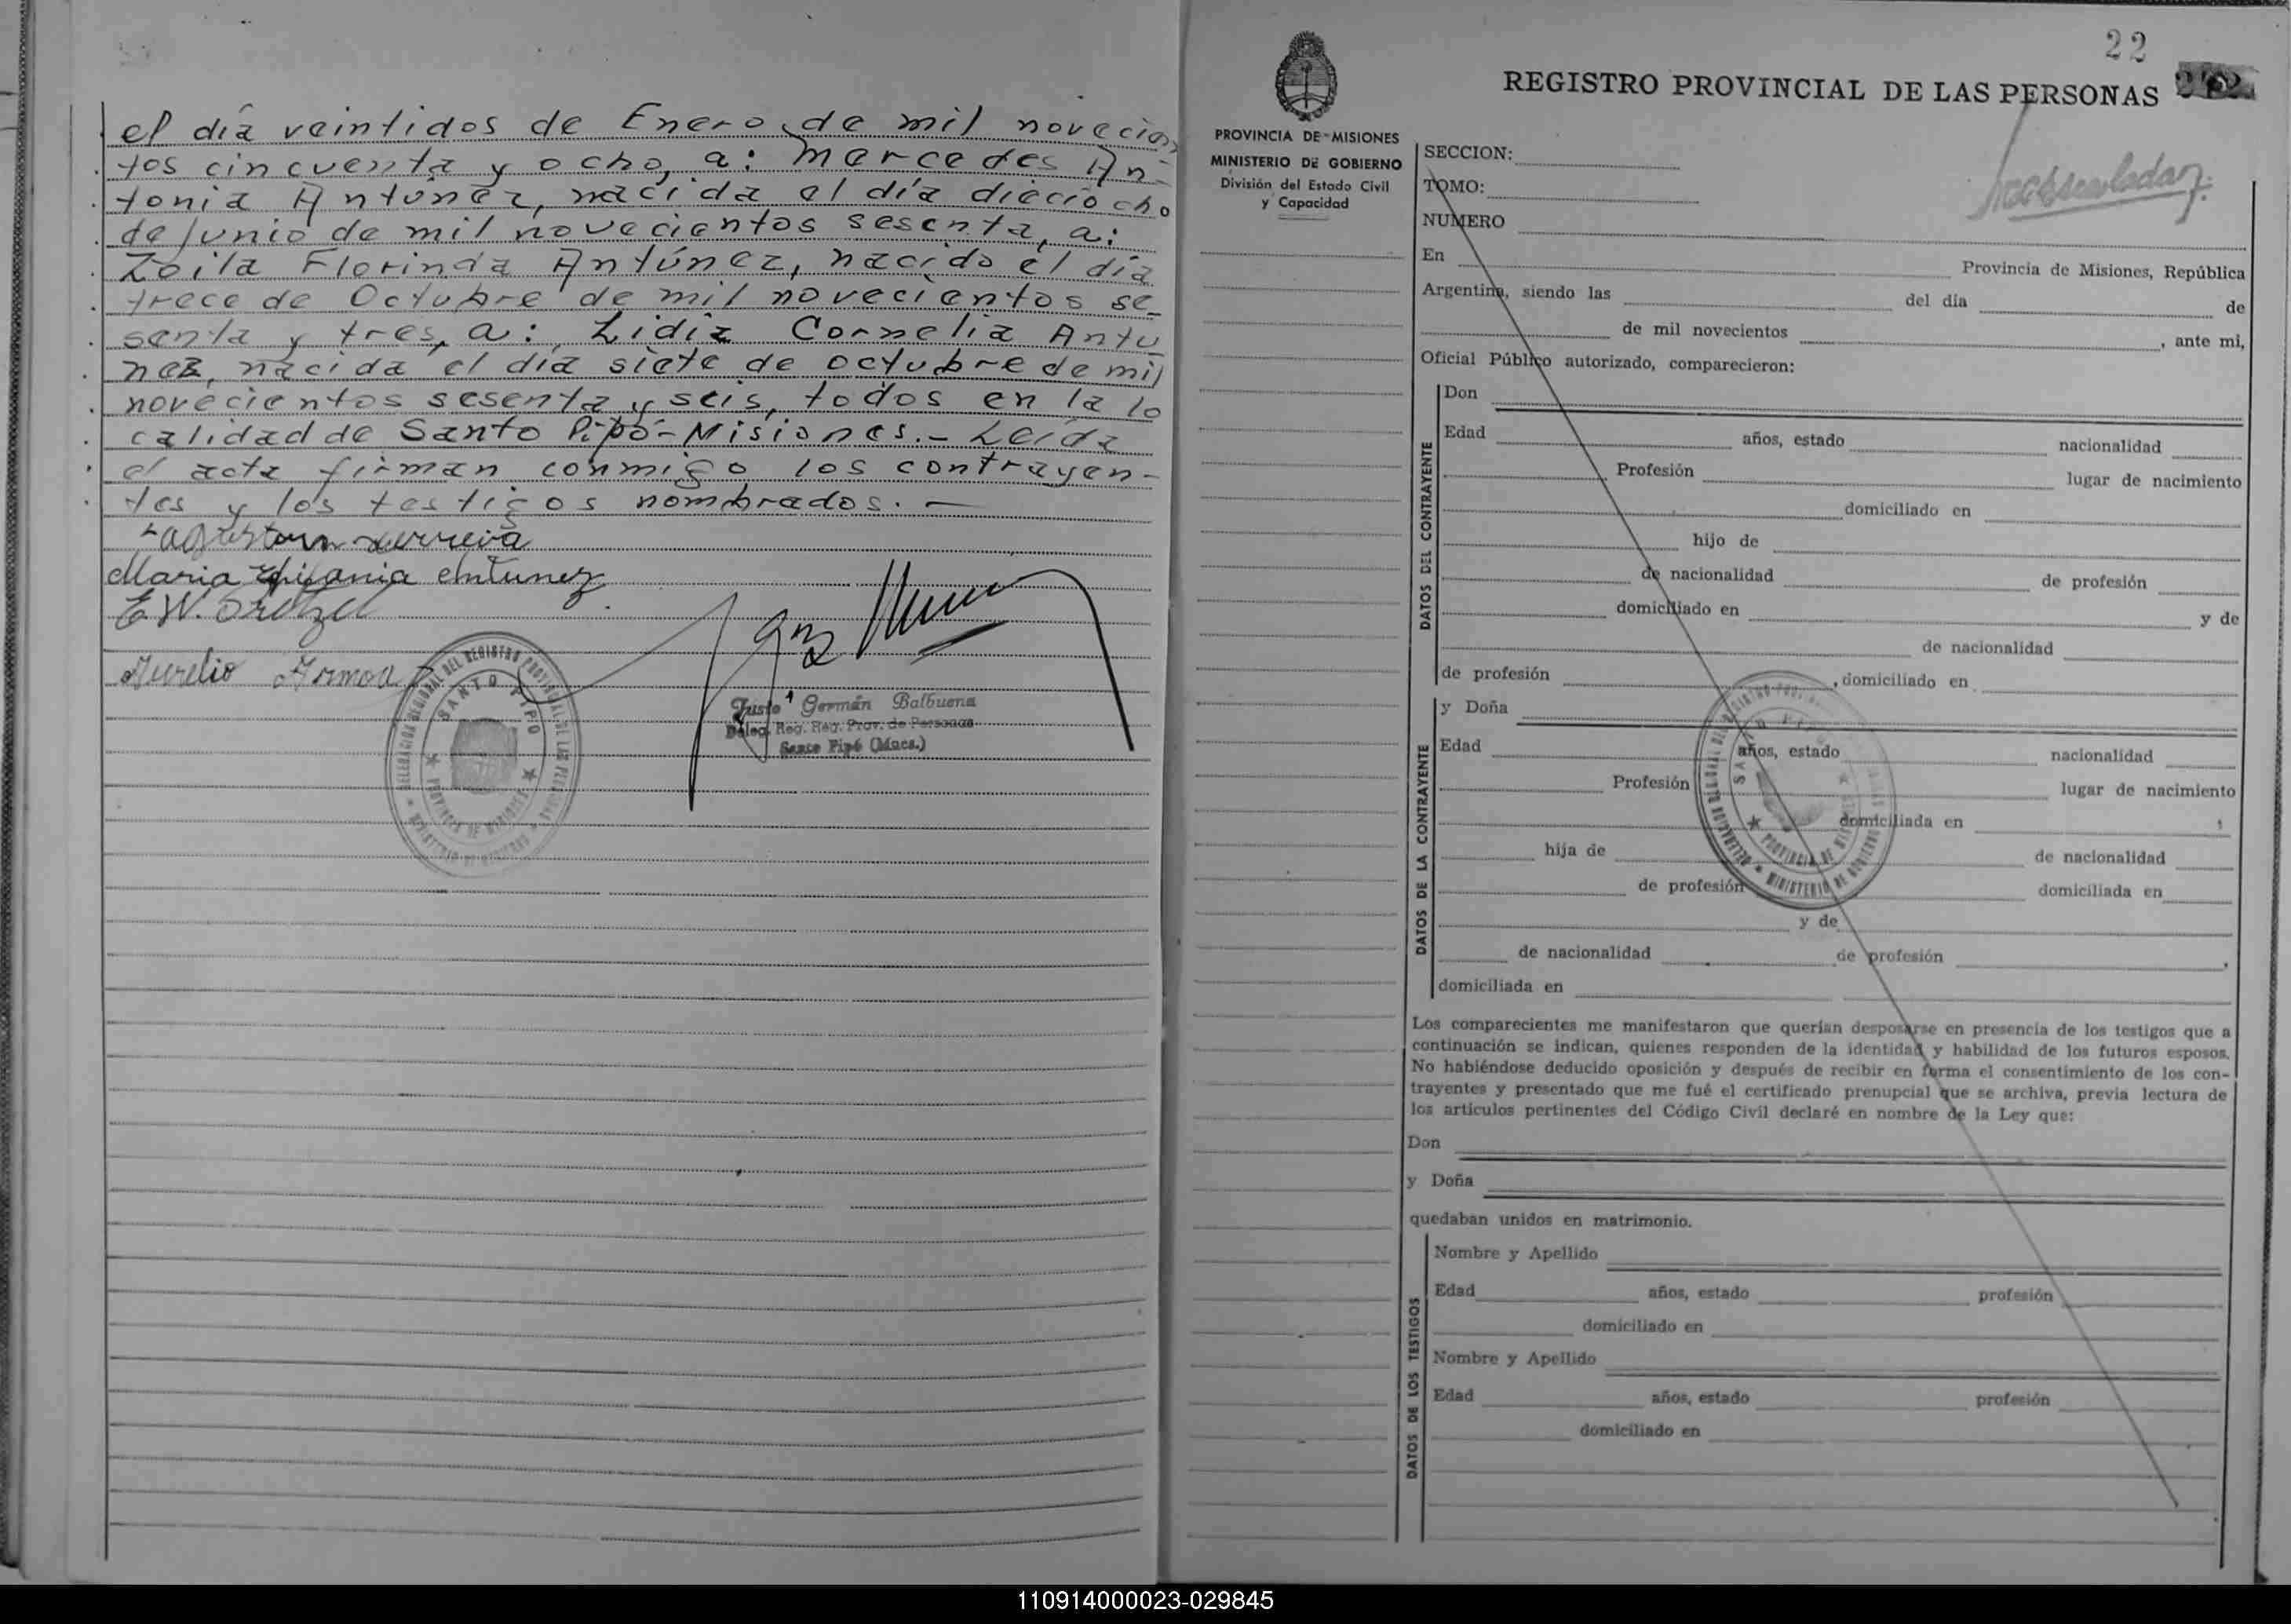 el día veintidos de Enero de mil novecien
tos cincuenta y ocho, a: Mercedes An-
tonia Antúnez, nacida el día dieciocho
de junio de mil novecientos sesenta, a:
Zoila Florinda Antúnez, nacido el día
trece de Octubre de mil novecientos se-
senta y tres, a: Lidia Cornelia Antu
nez, nacida el día siete de octubre de mil
novecientos sesenta y seis, todos en la lo
calidad de Santo Pipó-Misiones.- Leída
el acta firman conmigo los contrayen-
tes y los testigos nombrados. —
Maria Epifania Antunez
Aurelio
Justo Germán Balbuena
Deleg. Reg. Reg. Prov. de Personas
Santo Pipó (Mnes.)
SANTO PIPO
PROVINCIA DE MISIONES
22
REGISTRO PROVINCIAL DE LAS PERSONAS
PROVINCIA DE MISIONES
MINISTERIO DE GOBIERNO
División del Estado Civil
y Capacidad
SECCION:
TOMO:
NUMERO
En Provincia de Misiones, República
Argentina, siendo las del día de
de mil novecientos , ante mi,
Oficial Público autorizado, comparecieron:
DATOS DEL CONTRAYENTE
Don
Edad años, estado nacionalidad
Profesión lugar de nacimiento
domiciliado en
hijo de
de nacionalidad de profesión
domiciliado en y de
de nacionalidad
de profesión , domiciliado en
DATOS DE LA CONTRAYENTE
y Doña
Edad años, estado nacionalidad
Profesión lugar de nacimiento
domiciliada en
hija de de nacionalidad
de profesión domiciliada en
y de
de nacionalidad de profesión
domiciliada en
Los comparecientes me manifestaron que querían desposarse en presencia de los testigos que a
continuación se indican, quienes responden de la identidad y habilidad de los futuros esposos.
No habiéndose deducido oposición y después de recibir en forma el consentimiento de los con-
trayentes y presentado que me fué el certificado prenupcial que se archiva, previa lectura de
los artículos pertinentes del Código Civil declaré en nombre de la Ley que:
Don
y Doña
quedaban unidos en matrimonio.
DATOS DE LOS TESTIGOS
Nombre y Apellido
Edad años, estado profesión
domiciliado en
Nombre y Apellido
Edad años, estado profesión
domiciliado en
110914000023-029845